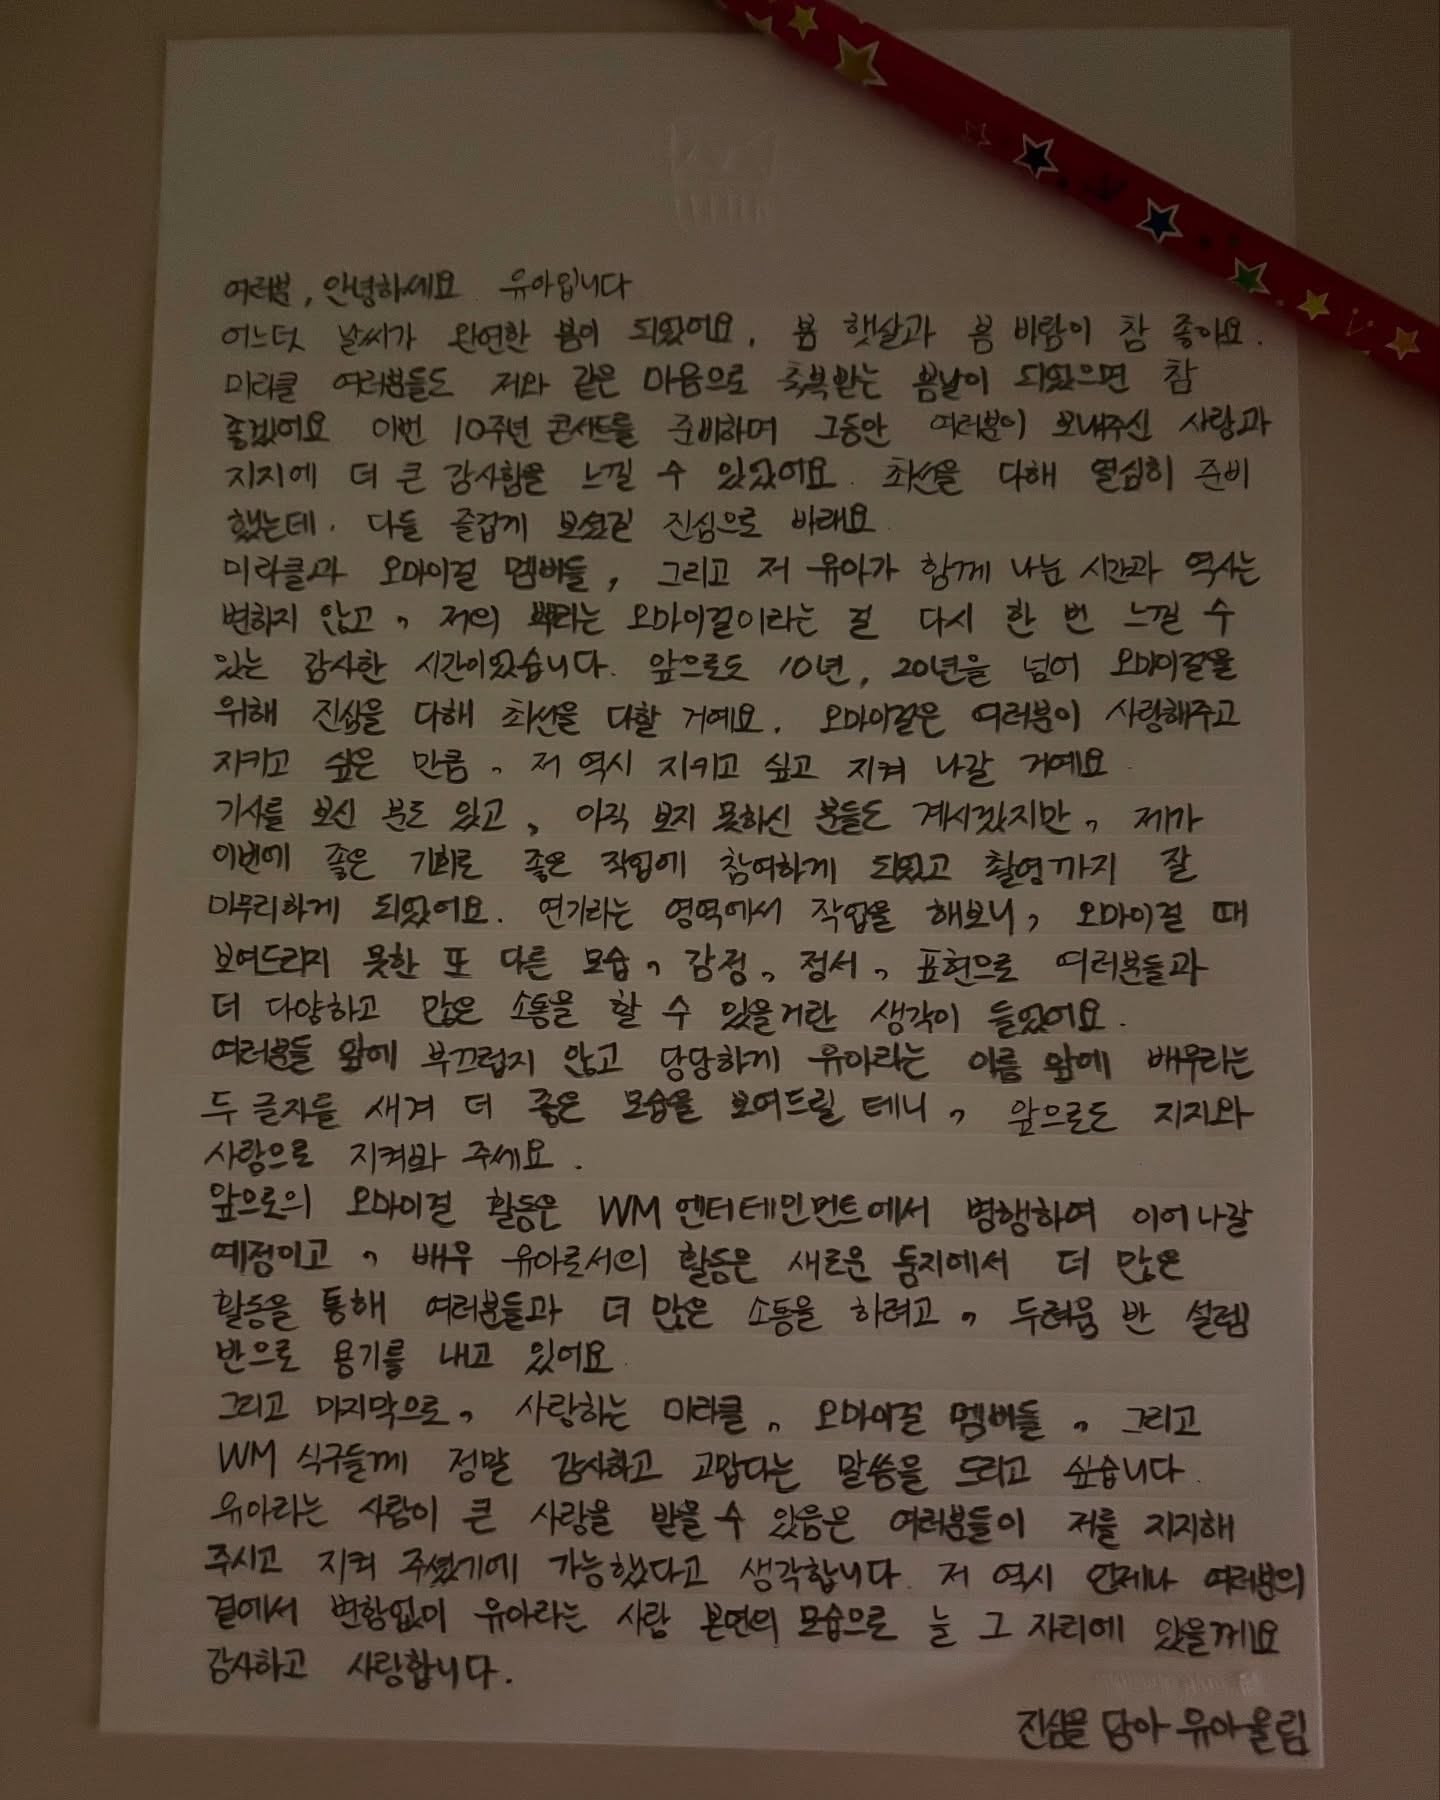 여러분, 안녕하세요. 유아입니다
어느덧 날씨가 완연한 봄이 되었어요. 봄 햇살과 봄 바람이 참 좋아요.
미라클 여러분들도 저와 같은 마음으로 축복받는 봄날이 되었으면 참
좋겠어요 이번 10주년 콘서트를 준비하며 그동안 여러분이 보내주신 사랑과
지지에 더 큰 감사함을 느낄 수 있었어요. 최선을 다해 열심히 준비
했는데. 다들 즐겁게 보셨길 진심으로 바래요.
미라클과 오마이걸 멤버들, 그리고 저 유아가 함께 나눈 시간과 역사는
변하지 않고, 저의 뿌리는 오마이걸이라는 걸 다시 한 번 느낄 수
있는 감사한 시간이었습니다. 앞으로도 10년, 20년을 넘어 오마이걸을
위해 진심을 다해 최선을 다할 거예요. 오마이걸은 여러분이 사랑해주고
지키고 싶은 만큼, 저 역시 지키고 싶고 지켜 나갈 거예요.
기사를 보신 분도 있고, 아직 보지 못하신 분들도 계시겠지만, 제가
이번에 좋은 기회로 좋은 작업에 참여하게 되었고 촬영까지 잘
마무리하게 되었어요. 연기라는 영역에서 작업을 해보니, 오마이걸 때
보여드리지 못한 또 다른 모습, 감정, 정서, 표현으로 여러분들과
더 다양하고 많은 소통을 할 수 있을거란 생각이 들었어요.
여러분들 앞에 부끄럽지 않고 당당하게 유아라는 이름 앞에 배우라는
두 글자를 새겨 더 좋은 모습을 보여드릴 테니, 앞으로도 지지와
사랑으로 지켜봐 주세요.
앞으로의 오마이걸 활동은 WM엔터테인먼트에서 병행하여 이어나갈
예정이고, 배우 유아로서의 활동은 새로운 둥지에서 더 많은
활동을 통해 여러분들과 더 많은 소통을 하려고, 두려움 반 설렘
반으로 용기를 내고 있어요.
그리고 마지막으로, 사랑하는 미라클, 오마이걸 멤버들, 그리고
WM 식구들께 정말 감사하고 고맙다는 말씀을 드리고 싶습니다.
유아라는 사람이 큰 사랑을 받을 수 있음은 여러분들이 저를 지지해
주시고 지켜 주셨기에 가능했다고 생각합니다. 저 역시 언제나 여러분의
곁에서 변함없이 유아라는 사람 본연의 모습으로 늘 그 자리에 있을께요
감사하고 사랑합니다.
진심을 담아 유아올림